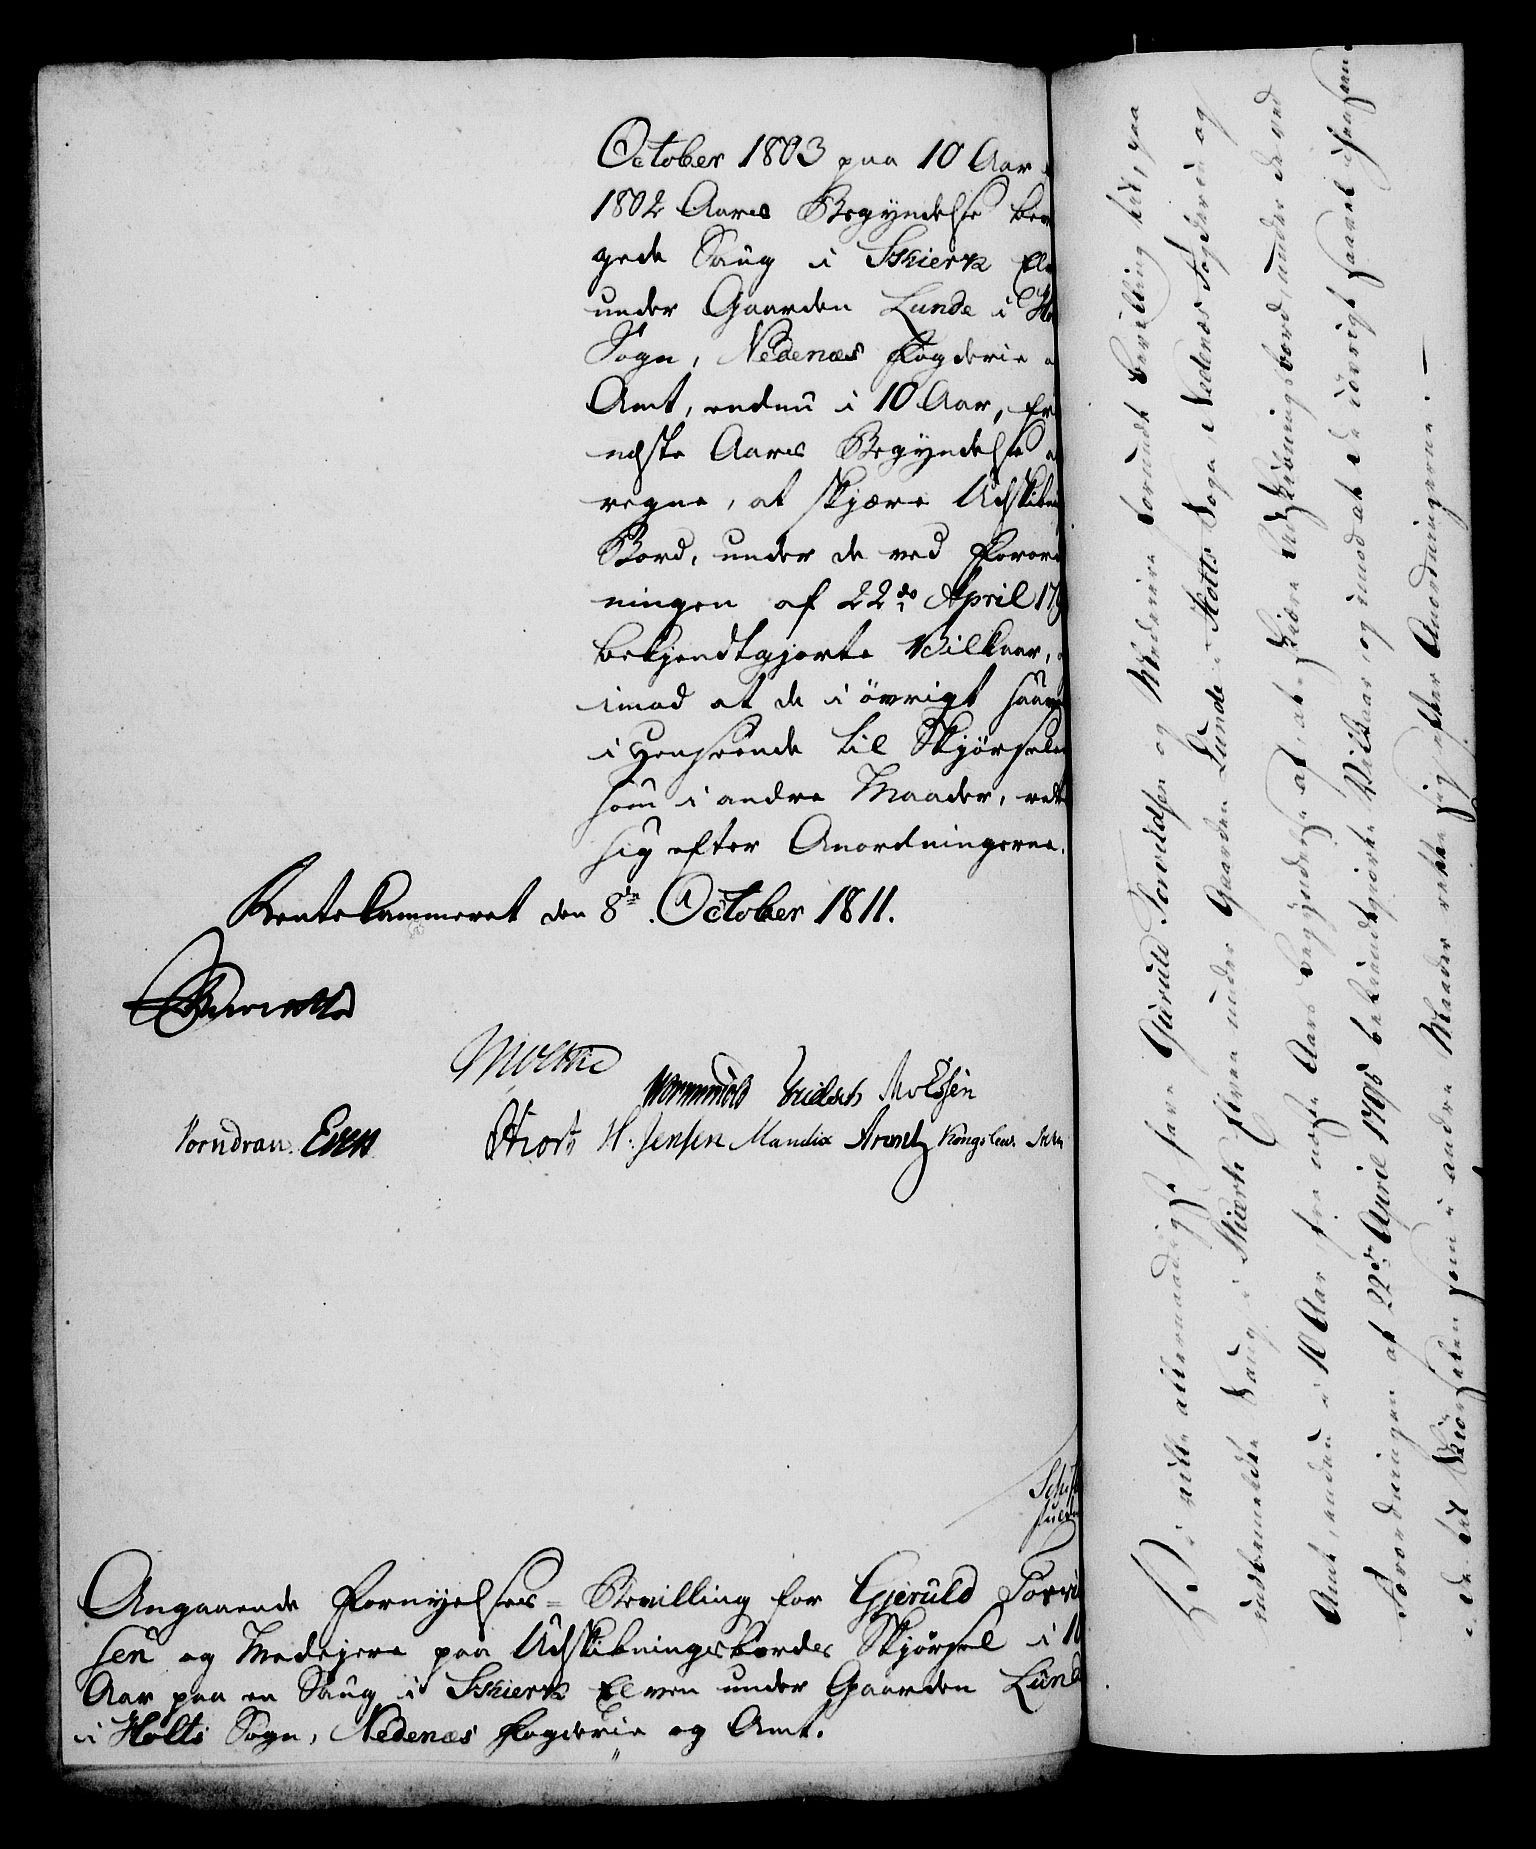 October 1803 paa 10 Aar
1802 Aars Begyndelse bev
gede Saug i Skierk Elv
under Gaarden Lunde i Ho
Sogn, Nedenæs Fogderie
Amt, endnu i 10 Aar, fr
næste Aars Begyndelse
regne, at skjære Udskibn
Bord, under de ved Forord
ningen af 22de April 179
bekjendtgjorte Vilkaar,
imod at de i övrigt saav
i Henseende til Skjørsele
som i andre Maader, rette
sig efter Anordningerne.
Rentekammeret den 8de October 1811.
Moltke
Wormskiold Knudsen Moßsin
Vorndran. Eeen Hiort H. Jensen Mandix Arentz Kongslew.
Angaaende Fornyelses-Bevilling for Gjeruld Torvi
sen og Medejere paa Udskibningsbordes Skjørsel i 10
Aar paa en Saug i Skierk Elven under Gaarden Lund
i Holts Sogn, Nedenæs Fogderie og Amt.
Vi ville allernaadigst have Gjeruld Torvildsen og Medeiere forundt Bevilling til, paa
indbemeldte Saug i Skierk Elven under Gaarden Lunde i Holts Sogn, Nedenæs Fogderie og
Amt, endnu i 10 Aar fra næste Aars Begyndelse af, at skiære Udskibningsbord, under de ved
Forordningen af 22de April 1795 bekiendtgiorte Vilkaar, og imod at de i övrigt saavel i Henseen
de til Skiörselen som i andre Maader rette sig efter Anordningerne. —